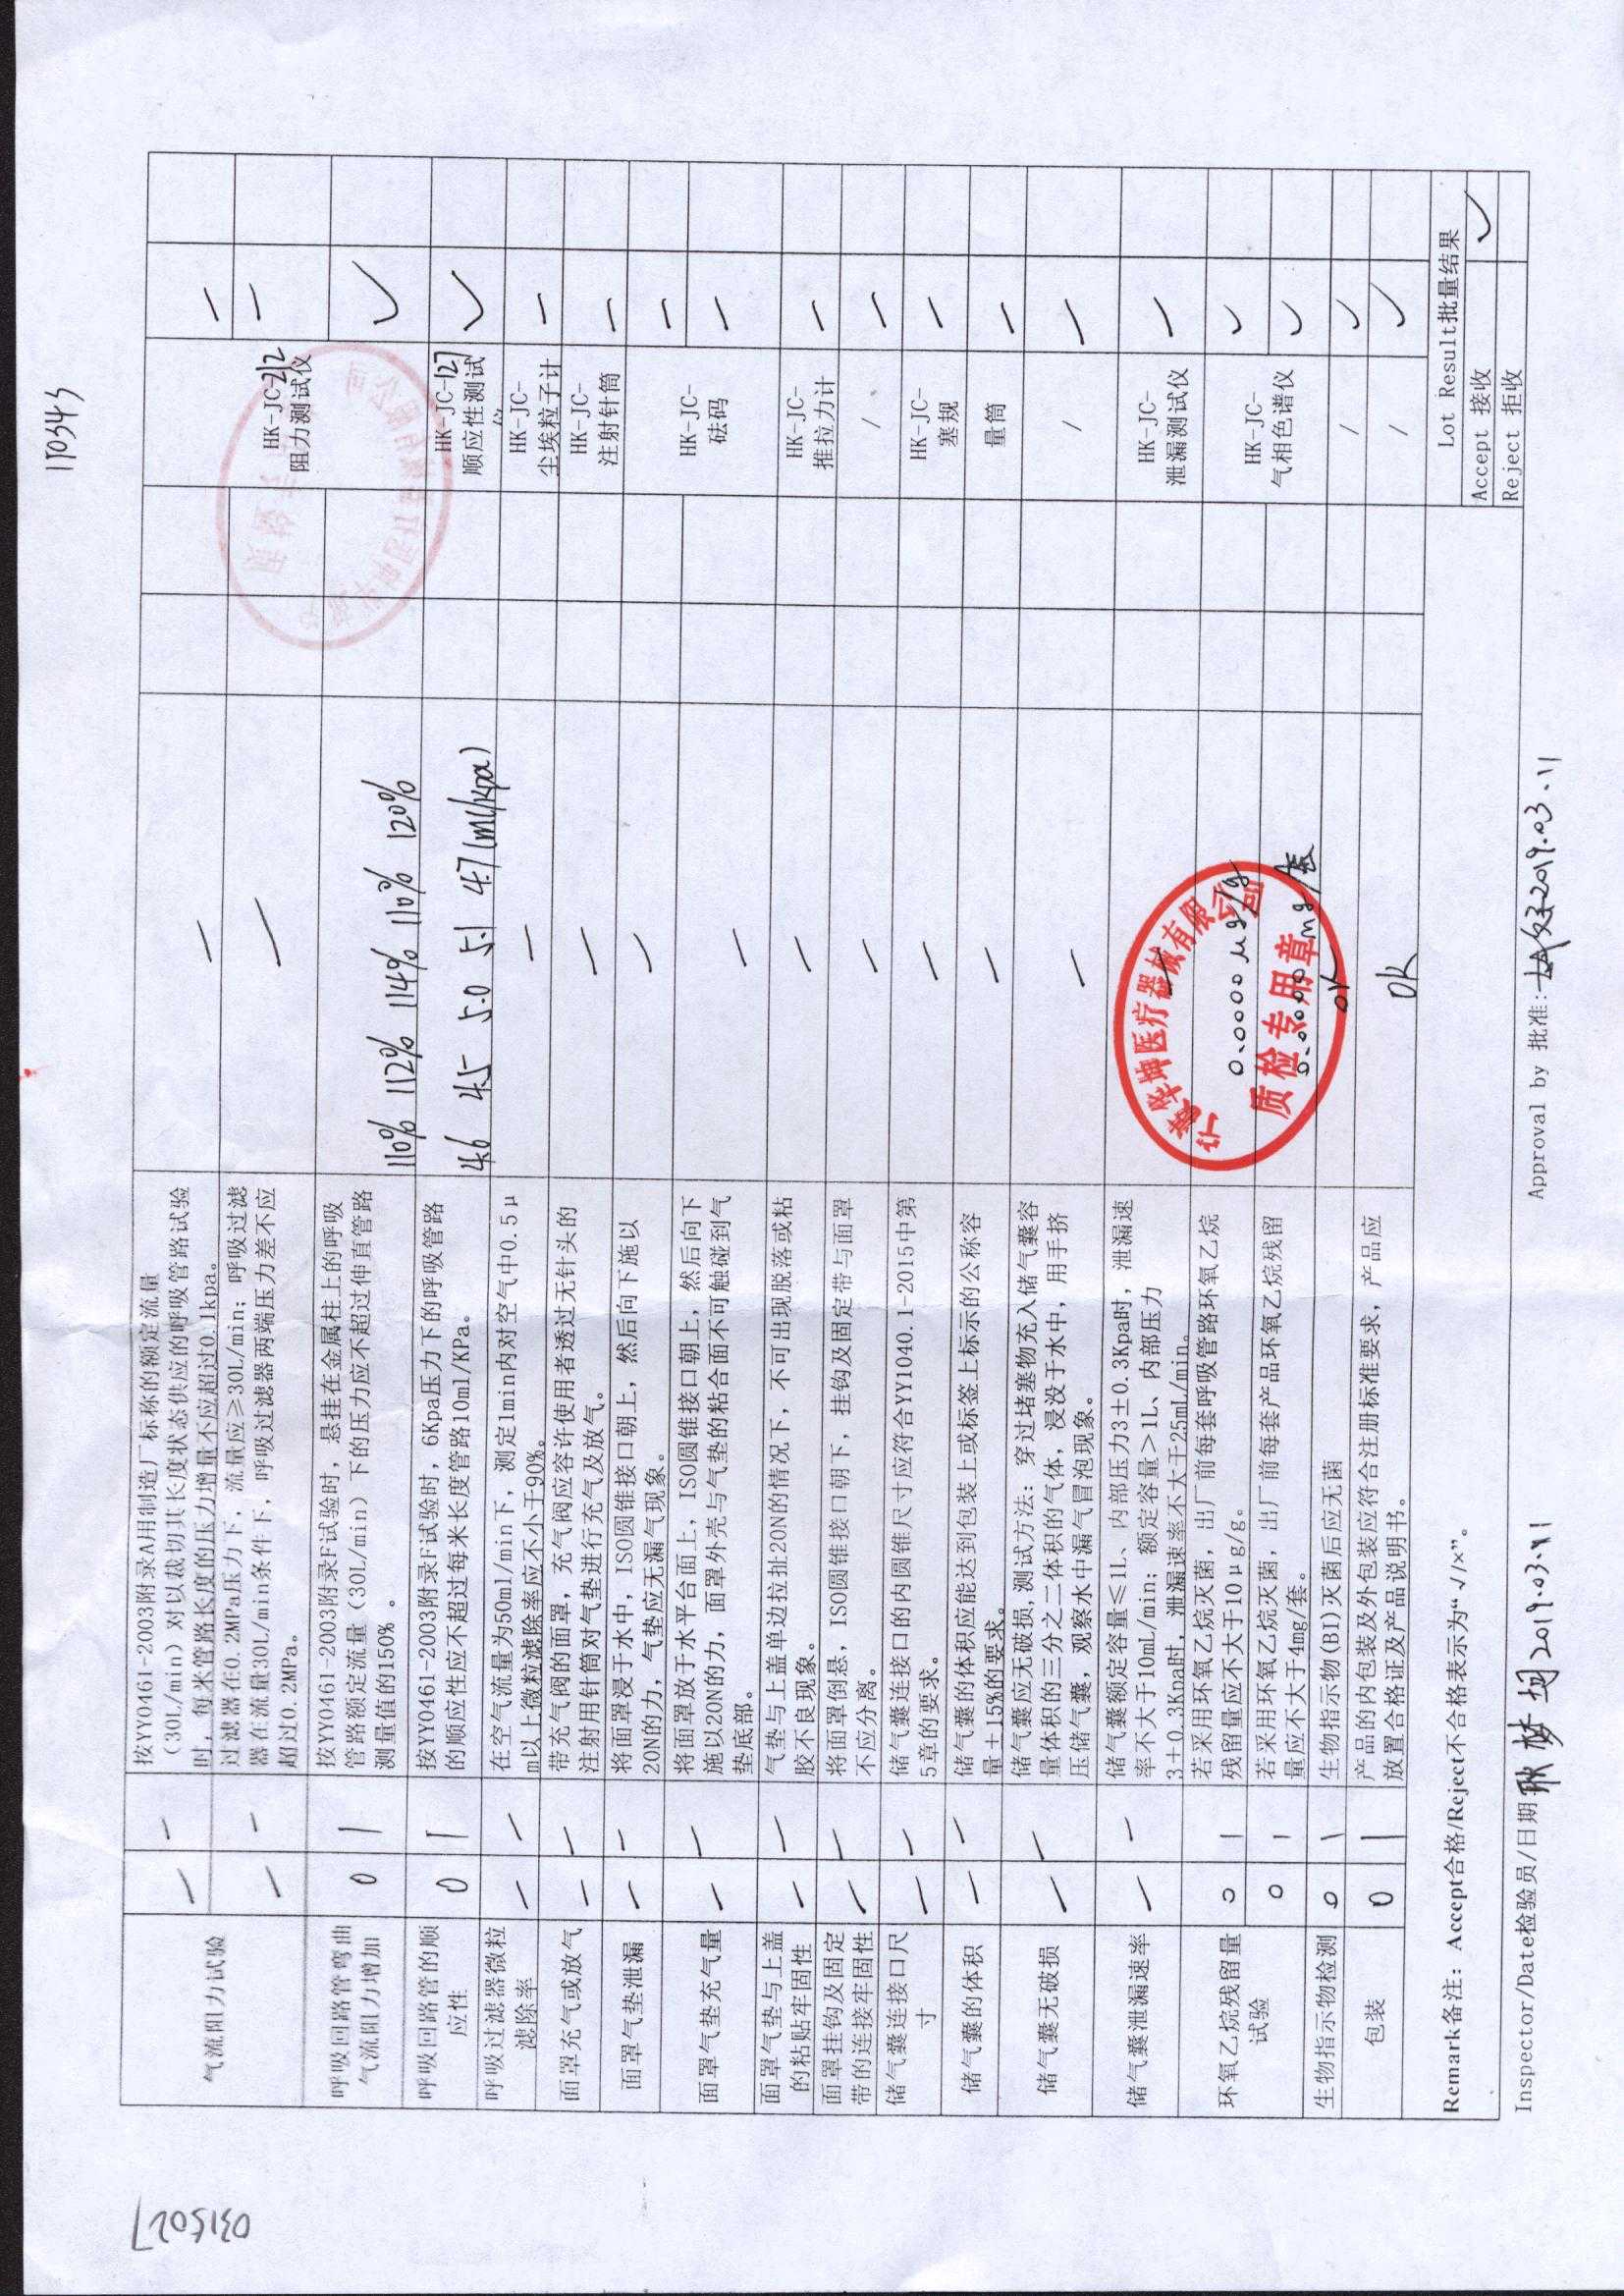 170343
气流阻力试验
按YY0461-2003附录A用制造厂标称的额定流量
（30L/min）对以裁切其长度状态供应的呼吸管路试验
时，每米管路长度的压力增量不应超过0.1kpa。
过滤器在0.2MPa压力下，流量应≥30L/min；呼吸过滤
器在流量30L/min条件下，呼吸过滤器两端压力差不应
超过0.2MPa。
HK-JC-212
阻力测试仪
呼吸回路管弯曲
气流阻力增加
0 1
按YY0461-2003附录F试验时，悬挂在金属柱上的呼吸
管路额定流量（30L/min）下的压力应不超过伸直管路
测量值的150%。
110% 112% 114% 110% 120%
✓
呼吸回路管的顺
应性
0 1
按YY0461-2003附录F试验时，6Kpa压力下的呼吸管路
的顺应性应不超过每米长度管路10ml/KPa。
4.6 4.5 5.0 5.1 4.7 (ml/kpa)
HK-JC-127
顺应性测试
仪
✓
呼吸过滤器微粒
滤除率
在空气流量为50ml/min下，测定1min内对空气中0.5μ
m以上微粒滤除率应不小于90%。
HK-JC-
尘埃粒子计
面罩充气或放气
带充气阀的面罩，充气阀应容许使用者透过无针头的
注射用针筒对气垫进行充气及放气。
HK-JC-
注射针筒
面罩气垫泄漏
将面罩浸于水中，ISO圆锥接口朝上，然后向下施以
20N的力，气垫应无漏气现象。
HK-JC-
砝码
面罩气垫充气量
将面罩放于水平台面上，ISO圆锥接口朝上，然后向下
施以20N的力，面罩外壳与气垫的粘合面不可触碰到气
垫底部。
面罩气垫与上盖
的粘贴牢固性
气垫与上盖单边拉扯20N的情况下，不可出现脱落或粘
胶不良现象。
HK-JC-
推拉力计
面罩挂钩及固定
带的连接牢固性
将面罩倒悬，ISO圆锥接口朝下，挂钩及固定带与面罩
不应分离。
/
储气囊连接口尺
寸
储气囊连接口的内圆锥尺寸应符合YY1040.1-2015中第
5章的要求。
HK-JC-
塞规
储气囊的体积
储气囊的体积应能达到包装上或标签上标示的公称容
量±15%的要求。
量筒
储气囊无破损
储气囊应无破损,测试方法：穿过堵塞物充入储气囊容
量体积的三分之二体积的气体，浸没于水中，用手挤
压储气囊，观察水中漏气冒泡现象。
/
储气囊泄漏速率
储气囊额定容量≤1L、内部压力3±0.3Kpa时，泄漏速
率不大于10mL/min；额定容量>1L、内部压力
3±0.3Kpa时，泄漏速率不大于25ml/min。
HK-JC-
泄漏测试仪
环氧乙烷残留量
试验
0 1
若采用环氧乙烷灭菌，出厂前每套呼吸管路环氧乙烷
残留量应不大于10μg/g。
0.0000 μg/g
HK-JC-
气相色谱仪
✓
0 1
若采用环氧乙烷灭菌，出厂前每套产品环氧乙烷残留
量应不大于4mg/套。
0.0000 mg/套
✓
医疗器械有限公司
质检专用章
生物指示物检测
0 1
生物指示物(BI)灭菌后应无菌
OK
/ ✓
包装
0 1
产品的内包装及外包装应符合注册标准要求，产品应
放置合格证及产品说明书。
OK
/ ✓
Remark备注：Accept合格/Reject不合格表示为“√/×”。
Lot Result批量结果
Accept 接收 ✓
Reject 拒收
Inspector/Date检验员/日期 2019.03.11
Approval by 批准: 2019.03.11
0315027